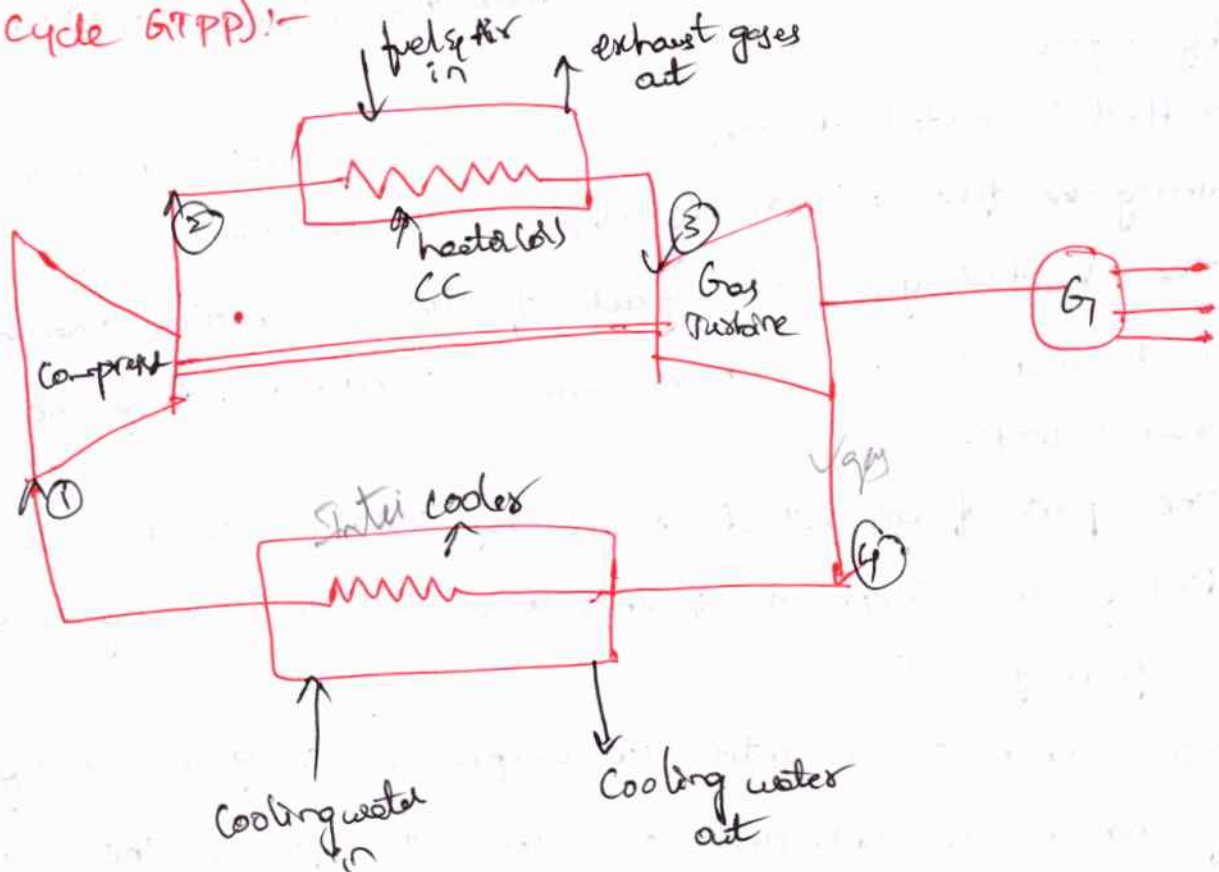 Cycle GTPP):-
fuel & Air
in
exhaust gases
out
②
heater (or)
CC
③
Gas
Turbine
G
①
Inter cooler
gas
④
Cooling water
in
Cooling water
out